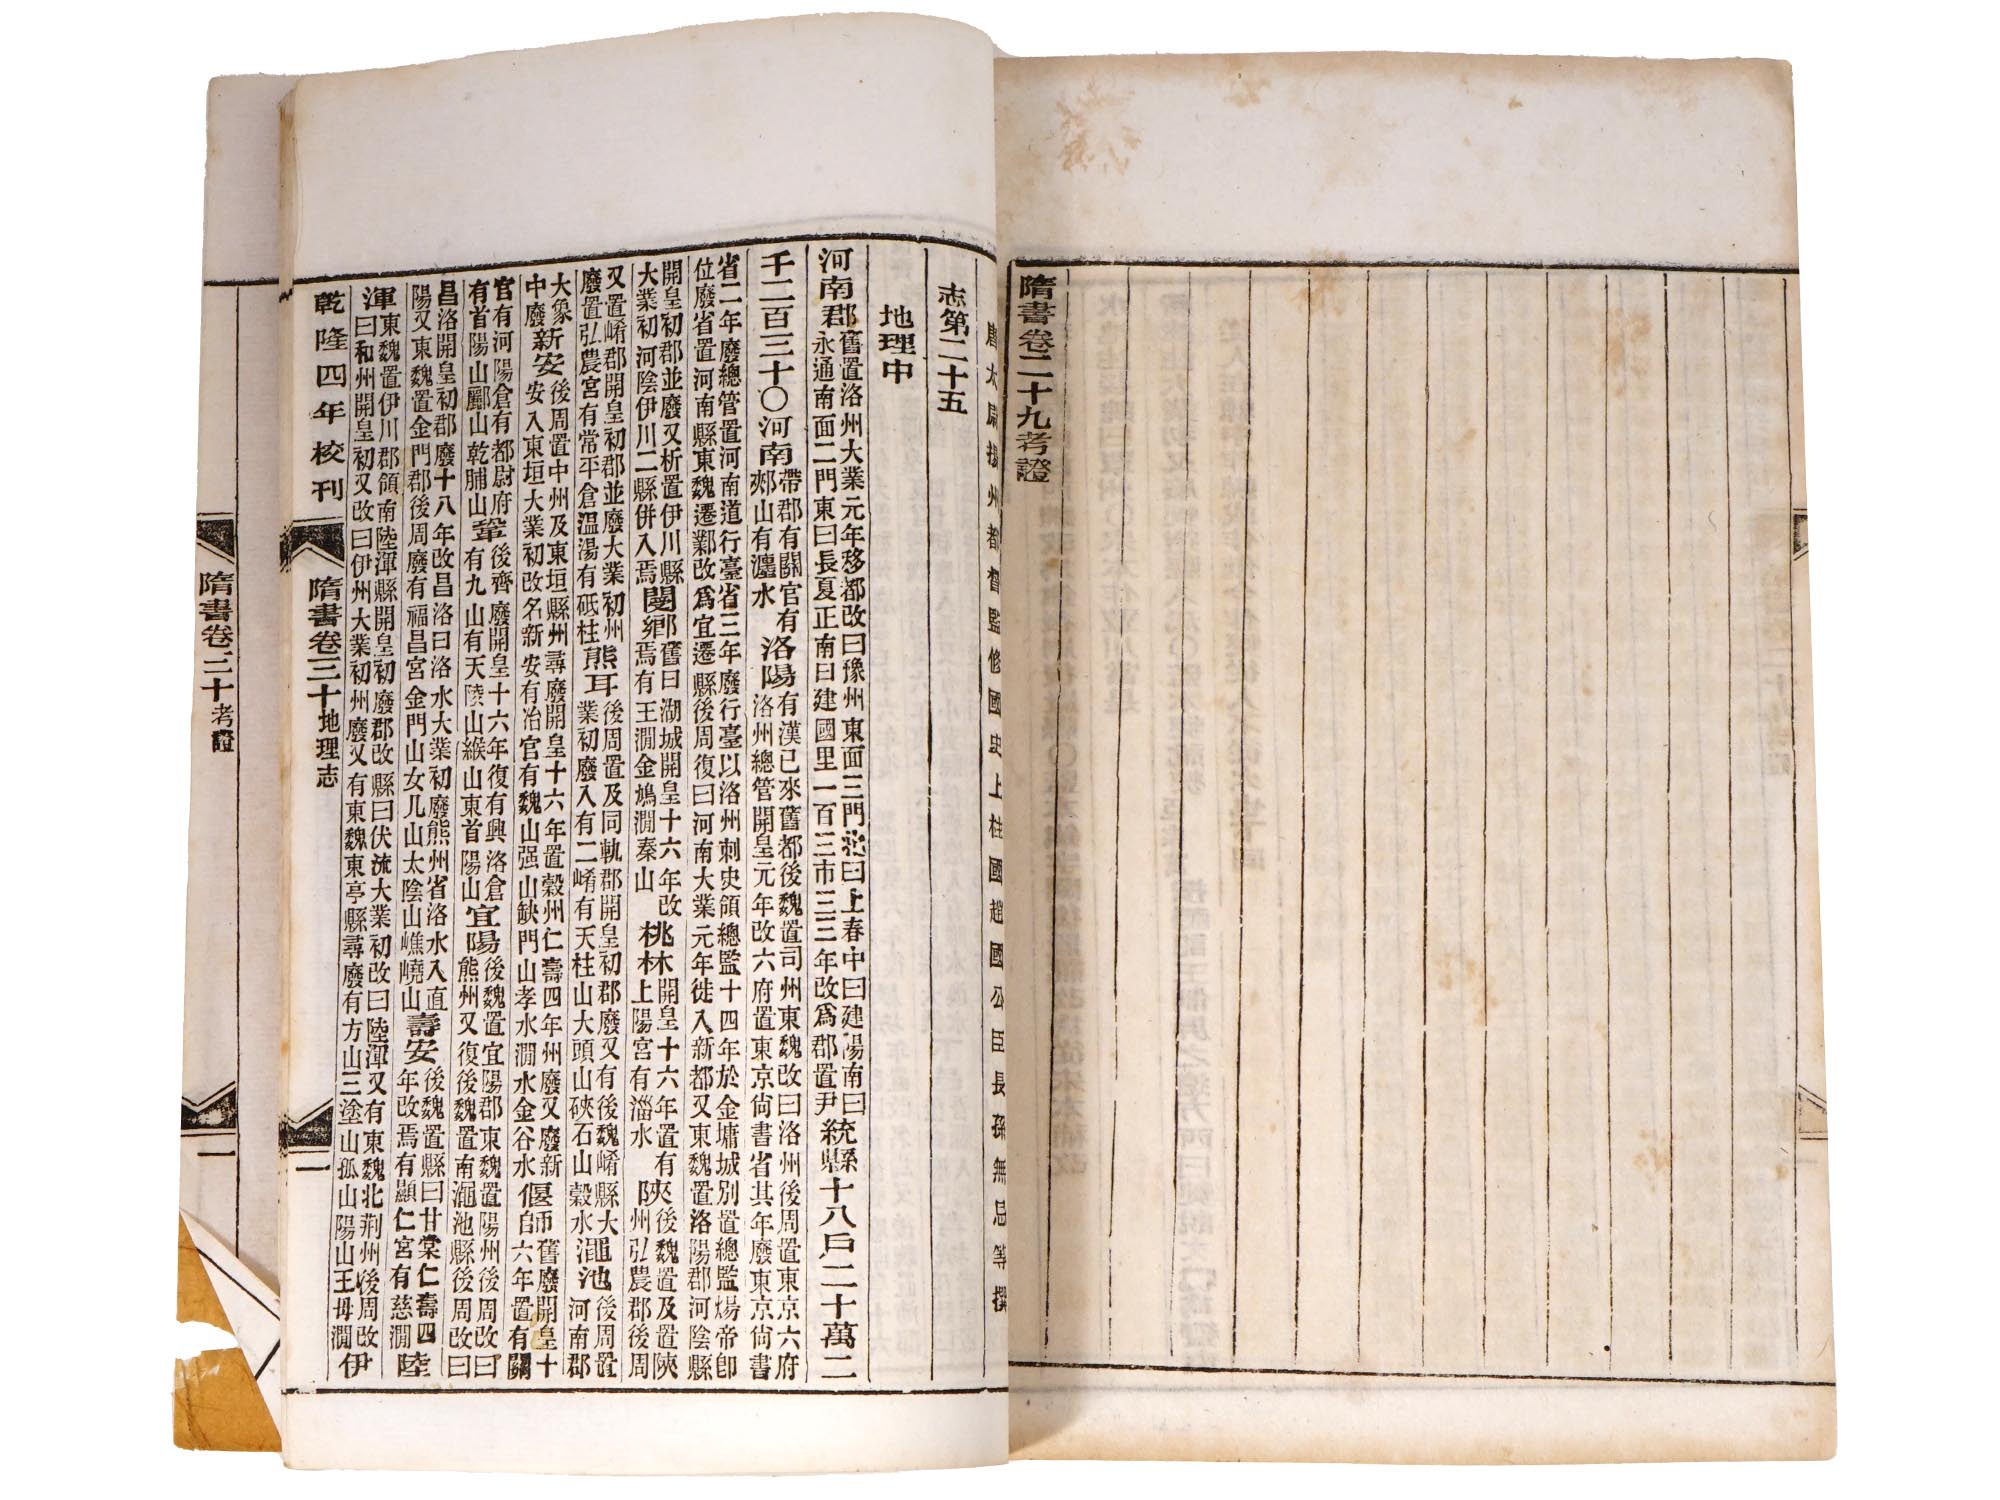 隋書卷二十九考證
唐太尉揚州都督監修國史上柱國趙國公臣長孫無忌等撰
志第二十五
地理中
河南郡舊置洛州大業元年移都改曰豫州東面三門北曰上春中曰建陽南曰永通南面二門東曰長夏正南曰建國里一百三市三三年改爲郡置尹統縣十八戶二十萬二
千二百三十○河南帶郡有關官有郟山有瀍水洛陽有漢已來舊都後魏置司州東魏改曰洛州後周置東京六府洛州總管開皇元年改六府置東京尚書省其年廢東京尚書
省二年廢總管置河南道行臺省三年廢行臺以洛州刺史領總監十四年於金墉城別置總監煬帝卽位廢省置河南縣東魏遷鄴改爲宜遷縣後周復曰河南大業元年徙入新都又東魏置洛陽郡河陰縣
開皇初郡並廢又析置伊川縣大業初河陰伊川二縣併入焉閿鄉舊曰湖城開皇十六年改焉有王澗金鳩澗秦山桃林開皇十六年置有上陽宮有淄水陝後魏置及置陝州弘農郡後周
又置崤郡開皇初郡並廢大業初州廢置弘農宮有常平倉溫湯有砥柱熊耳後周置及同軌郡開皇初郡廢又有後魏崤縣大業初廢入有二崤有天柱山大頭山硤石山穀水澠池後周置河南郡
大象中廢新安後周置中州及東垣縣州尋廢開皇十六年置穀州仁壽四年州廢又廢新安入東垣大業初改名新安有冶官有魏山强山缺門山孝水澗水金谷水偃師舊廢開皇十六年置有關
官有河陽倉有都尉府有首陽山郦山乾脯山鞏後齊廢開皇十六年復有興洛倉有九山有天陵山緱山東首陽山宜陽後魏置宜陽郡東魏置陽州後周改曰熊州又復後魏置南澠池縣後周改曰
昌洛開皇初郡廢十八年改昌洛曰洛水大業初廢熊州省洛水入直陽又東魏置金門郡後周廢有福昌宮金門山女几山太陰山嶕嶢山壽安後魏置縣曰甘棠仁壽四年改焉有顯仁宮有慈澗陸
渾東魏置伊川郡領南陸渾縣開皇初廢郡改縣曰伏流大業初改曰陸渾又有東魏北荆州後周改曰和州開皇初又改曰伊州大業初州廢又有東魏東亭縣尋廢有方山三塗山孤山陽山王母澗伊
乾隆四年校刊 隋書卷三十地理志 一
隋書卷三十考證 一